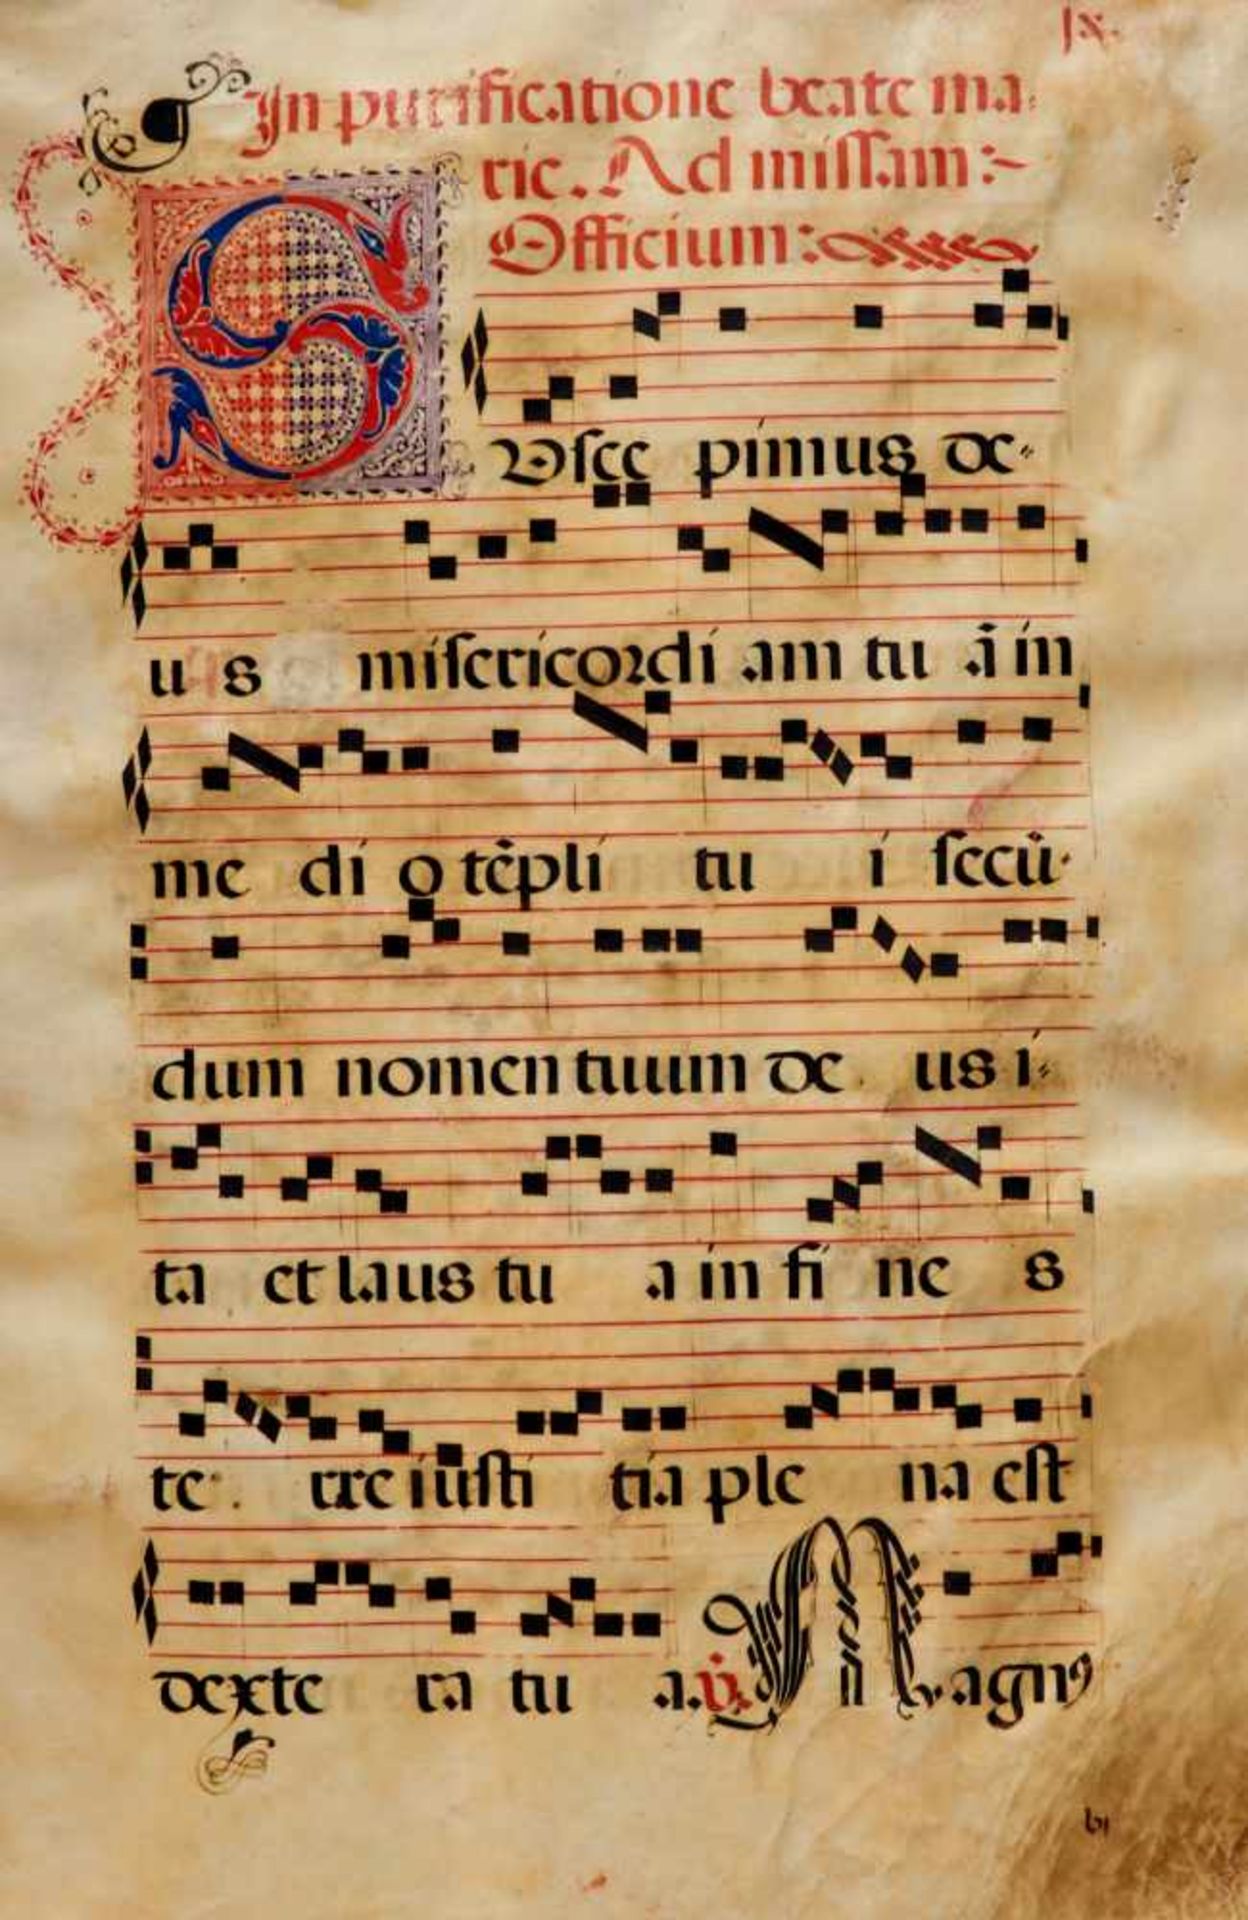 ix.
In purificatione beate ma
rie. Ad missam:~
Officium:
SVscepimus de-
us misericordiam tuā in
medio tēpli tui secū-
dum nomen tuum deus i-
ta et laus tua in fines
terre iusticia plena est
dextera tua. v̇. Magnꝰ
bi